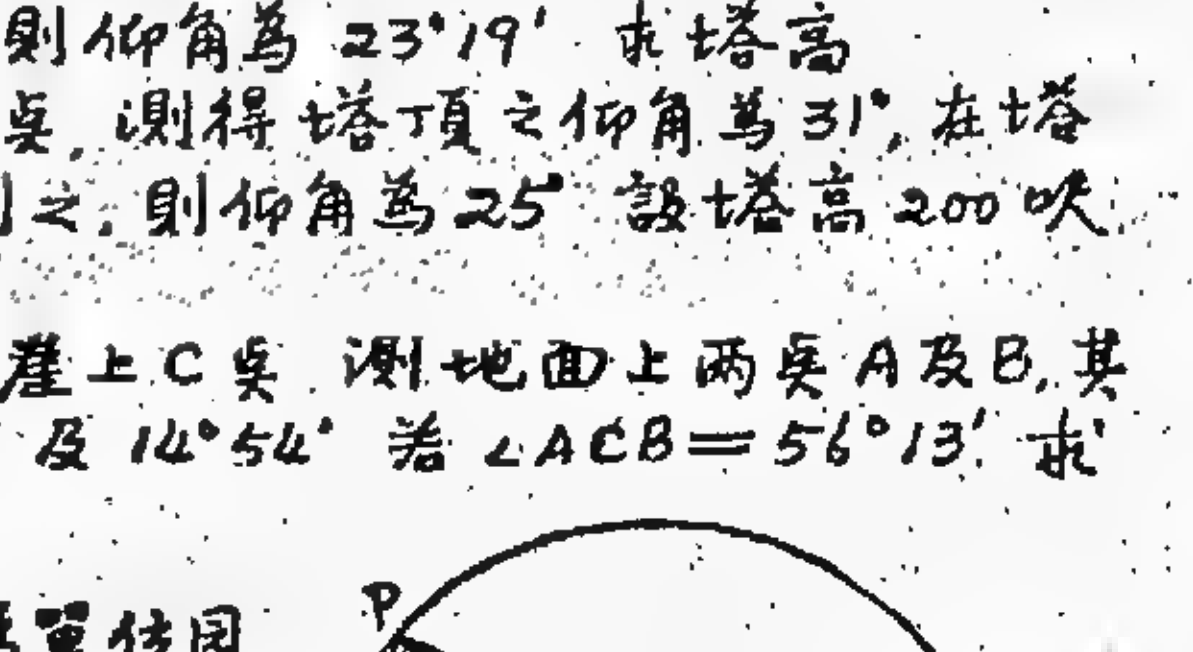 則仰角為 23°19' 求塔高
奌, 測得塔頂之仰角為 31°, 在塔
之, 則仰角為 25° 設塔高 200 呎
崖上 C 奌 測地面上两奌 A 及 B, 其
及 14°54' 若 ∠ACB=56°13' 求
P
單位园